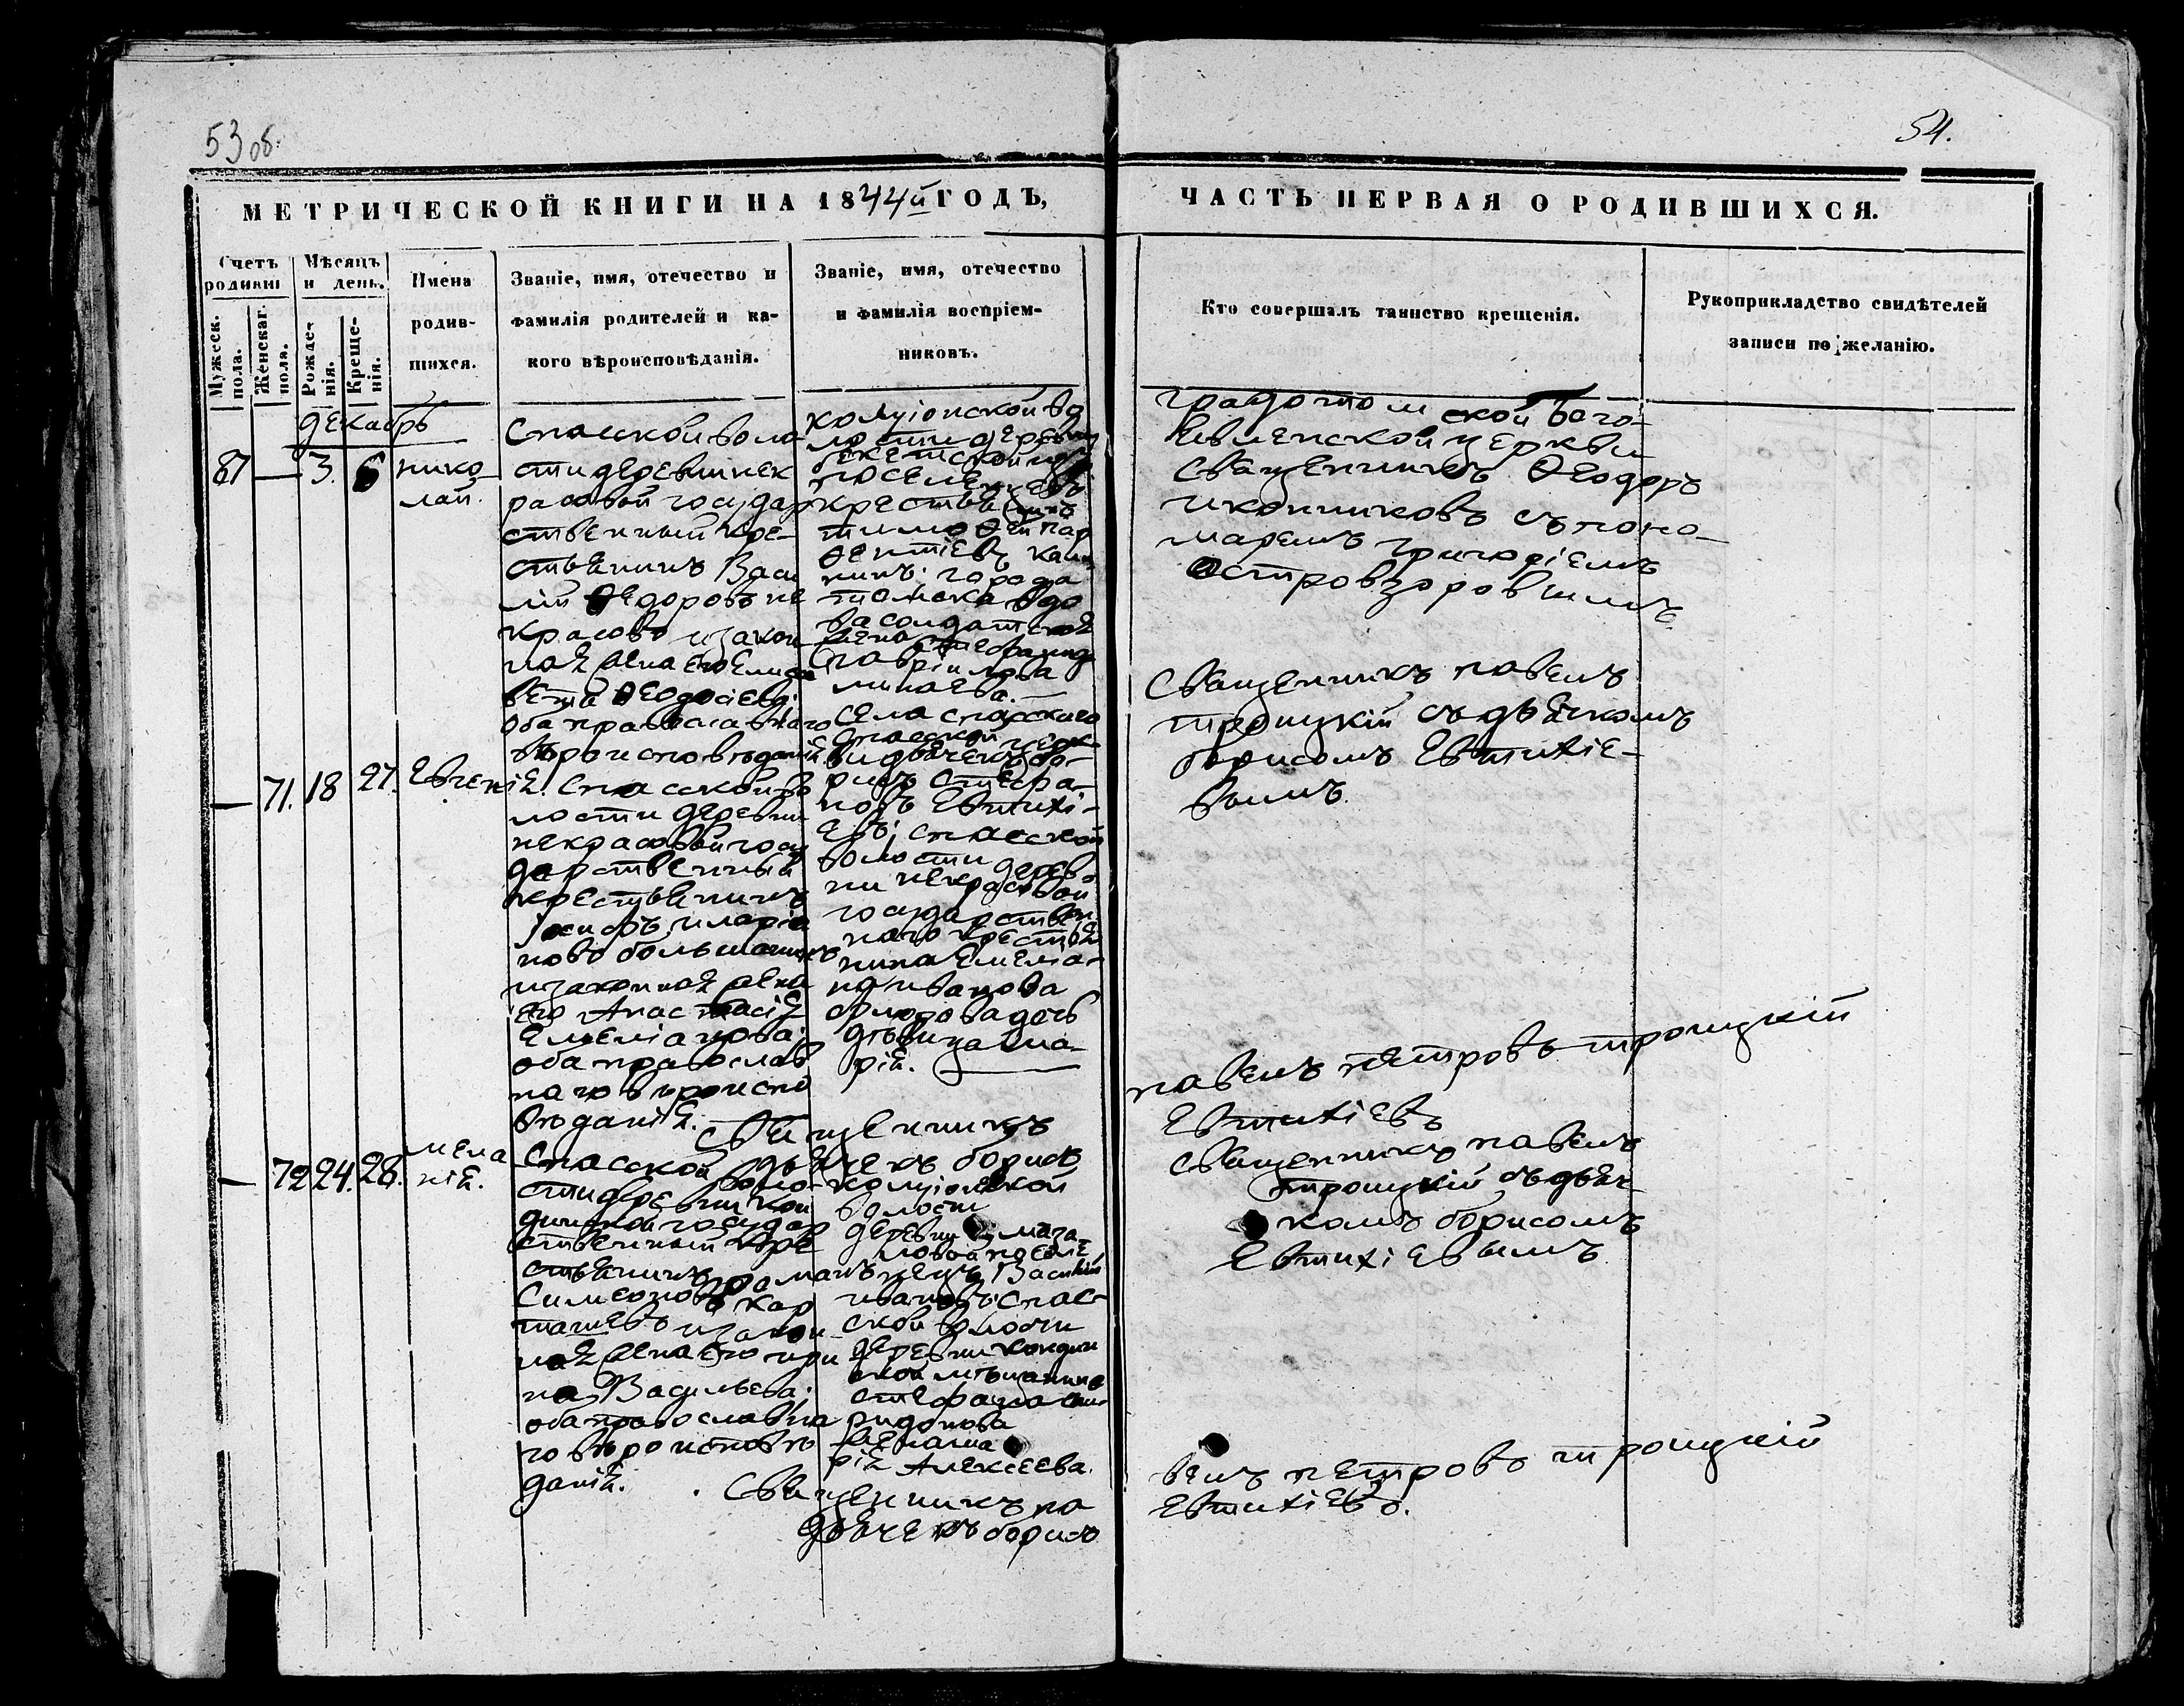 53 об.
54.
МЕТРИЧЕСКОЙ КНИГИ НА 1844й ГОДЪ,
ЧАСТЬ ПЕРВАЯ О РОДИВШИХСЯ.
Счетъ родивш
Мужеск. пола.
Женскаг. пола.
Мѣсяцъ и день.
Рожде-нія.
Креще-нія.
Имена
родив-
шихся.
Званіе, имя, отечество и
фамилія родителей и ка-
кого вѣроисповѣданія.
Званіе, имя, отечество
и фамилія воспріем-
никовъ.
Кто совершалъ таинство крещенія.
Рукоприкладство свидѣтелей
записи по желанію.
декабрь
87 — 3. 6
нико
лай.
Спасской воло-
сти деревни нек
расовой государ
ственный кре-
стьянинъ Васи
лій Ѳедоровъ не
красовъ и закон
ная жена его Елиса
вета Ѳеодосіева;
оба православнаго
вѣроисповѣданія
лости деревни
поселенецъ
крестьянинъ
тимоѳей пар
ѳентіевъ
города
томска вдо
ва солдатская
жена
гавріилова
градотомской Бого-
явленской церкви
Священникъ Ѳеодоръ
иконниковъ съ поно-
маремъ григоріемъ
островзоровымъ.
— 71. 18 27. Евгенія.
Спасской во
лости деревни
некрасовой госу
дарственный
крестьянинъ
Іосифъ иларіо
новъ большанинъ
и законная жена
его Анастасія
Емеліанова;
оба православ
наго вѣроиспо
вѣданія.
села спасскаго
Спасской церк-
ви дьячекъ бо-
рисъ Стефа-
новъ Евтихі-
евъ; спасской
волости дерев-
ни некрасовой
государствен
наго крестья
нина Емеліа-
на иванова
фролова дочь
дѣвица ма-
рія.
Священникъ павелъ
троицкій съ дьячкомъ
борисомъ Евтихіе-
вымъ.
Священникъ
павелъ петровъ троицкій
дьячекъ борисъ
Евтихіевъ
— 72 24. 28.
мела
нія.
Спасской воло-
сти деревни кон
динской государ
ственный кре
стьянинъ романъ
Симеоновъ кар
ташевъ и закон
ная жена его ири
на Васильева;
оба православна
го вѣроисповѣ
данія.
волости
деревни
поселе
нецъ Василій
ивановъ; спас-
ской волости
деревни кондин
ской мѣщанина
стефана спи-
ридонова
жена ма
рія Алексеева.
Священникъ павелъ
троицкій съ дьяч-
комъ борисомъ
Евтихіевымъ
Священникъ па
велъ петровъ троицкій
дьячекъ борисъ
Евтихіевъ.